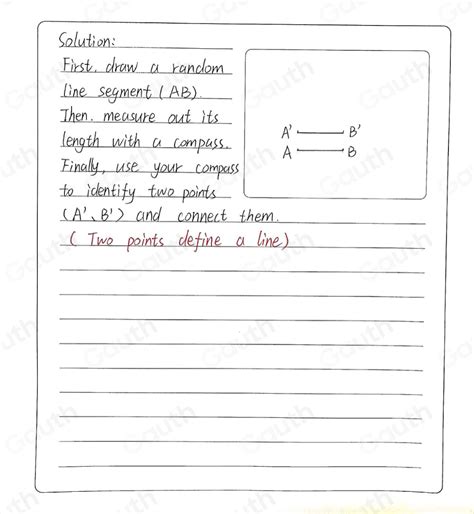 Solution:
First. draw a random
line segment (AB).
Then. measure out its
length with a compass.
Finally, use your compass
to identify two points
(A'、B') and connect them.
( Two points define a line)
A' B'
A B
Gauth